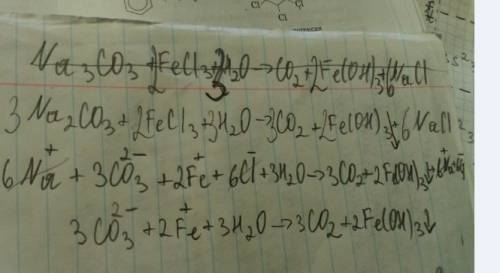 Na₃CO₃ + 2FeCl₃ + 3H₂O → CO₂ + 2Fe(OH)₃ + 6NaCl
3Na₂CO₃ + 2FeCl₃ + 3H₂O → 3CO₂ + 2Fe(OH)₃↓ + 6NaCl
6Na⁺ + 3CO₃²⁻ + 2Fe⁺ + 6Cl⁻ + 3H₂O → 3CO₂ + 2Fe(OH)₃↓ +
3CO₃²⁻ + 2Fe⁺ + 3H₂O → 3CO₂ + 2Fe(OH)₃↓